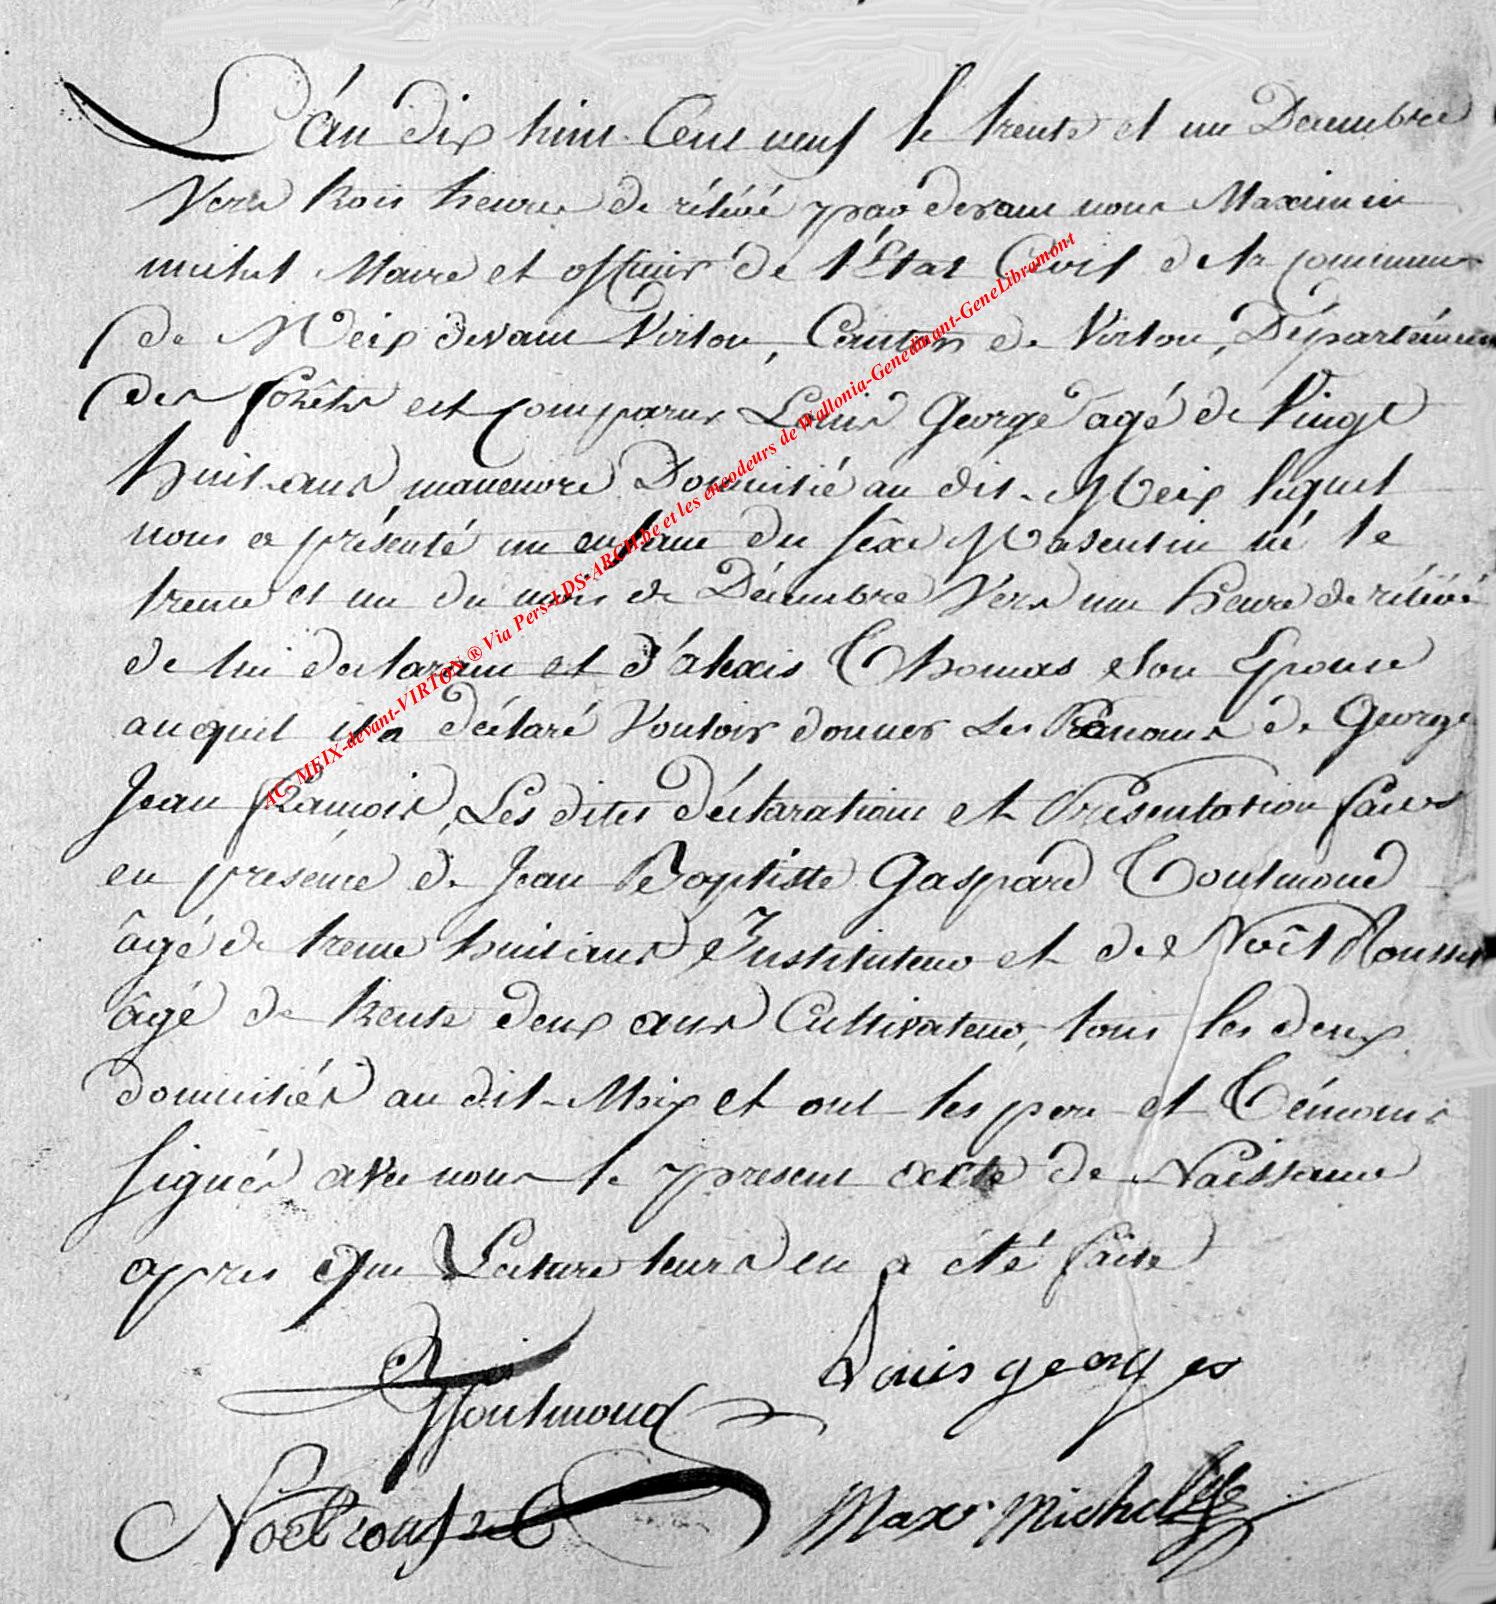 L'án dix huit Cent neuf le trente et un Decembre
Vers trois heures de rélévé par devant nous Maximin
michel Maire et officier de l'État Civil de la commune
de Meix devant Virton, Canton de Virton, Département
des forêts est comparus Louis George agé de Vingt
huit ans manœuvre Domicilié au dit Meix lequel
nous a présenté un enfant du sexe Masculin né le
trente et un du mois de Décembre Vers une heure de rélévé
de lui declarant et d'alexis Thomas son Epouse
auquel il a déclaré Vouloir donner Les Prenoms de George
Jean François, Les dites déclarations et Présentation faites
en présence de Jean Baptiste Gaspard Toulmond
âgé de trente huit ans Instituteur et de Noêl Rousset
âgé de trente deux ans Cultivateur, tous les deux
domiciliés au dit Meix et ont les pere et Témoins
signés avec nous le present acte de Naissance
apres que Lecture leurs en a été faite
Louis georges
Toulmond
Noël roussel
Max. Michel
AC- MEIX-devant-VIRTON ® Via Pers-LDS-ARCH.be et les encodeurs de Wallonia-Genedinant-GeneLibramont